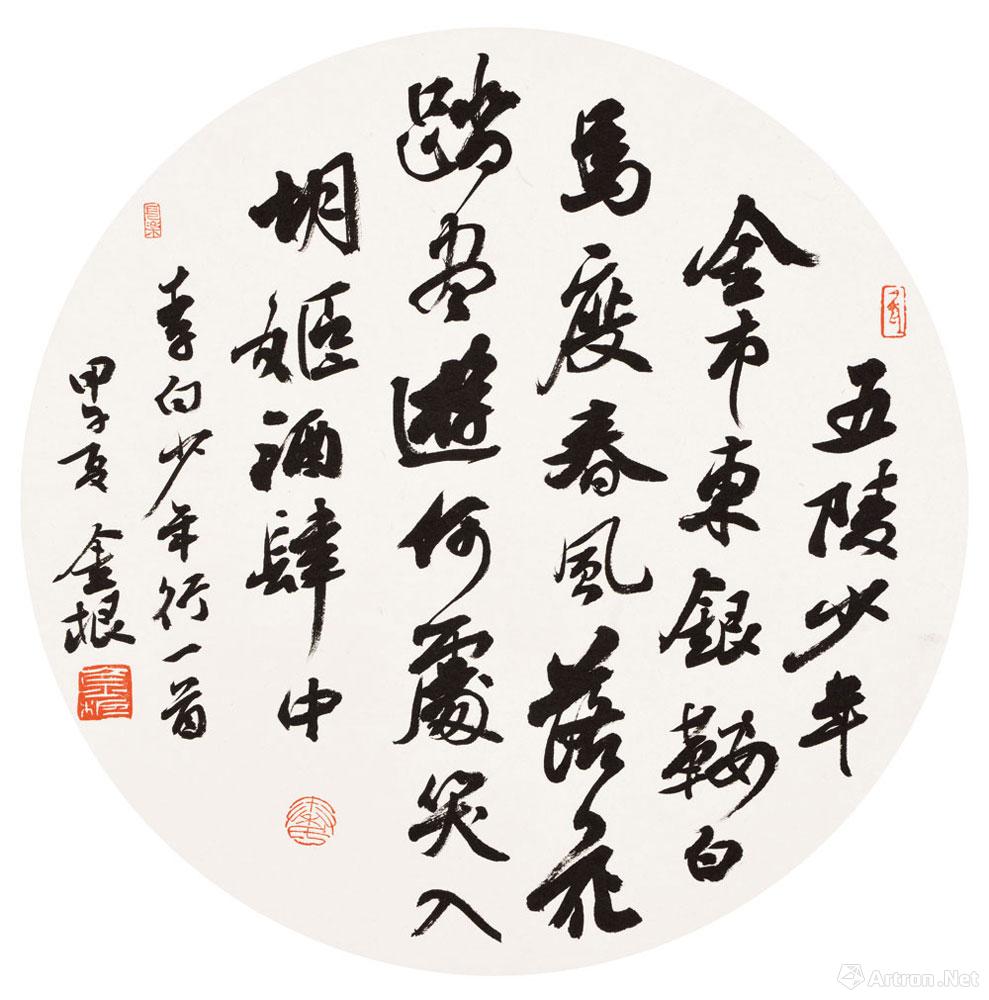 五陵少年
金市東銀鞍白
馬度春風落花
踏盡遊何處笑入
胡姬酒肆中
李白少年行一首
甲午夏 金根
Artron.Net